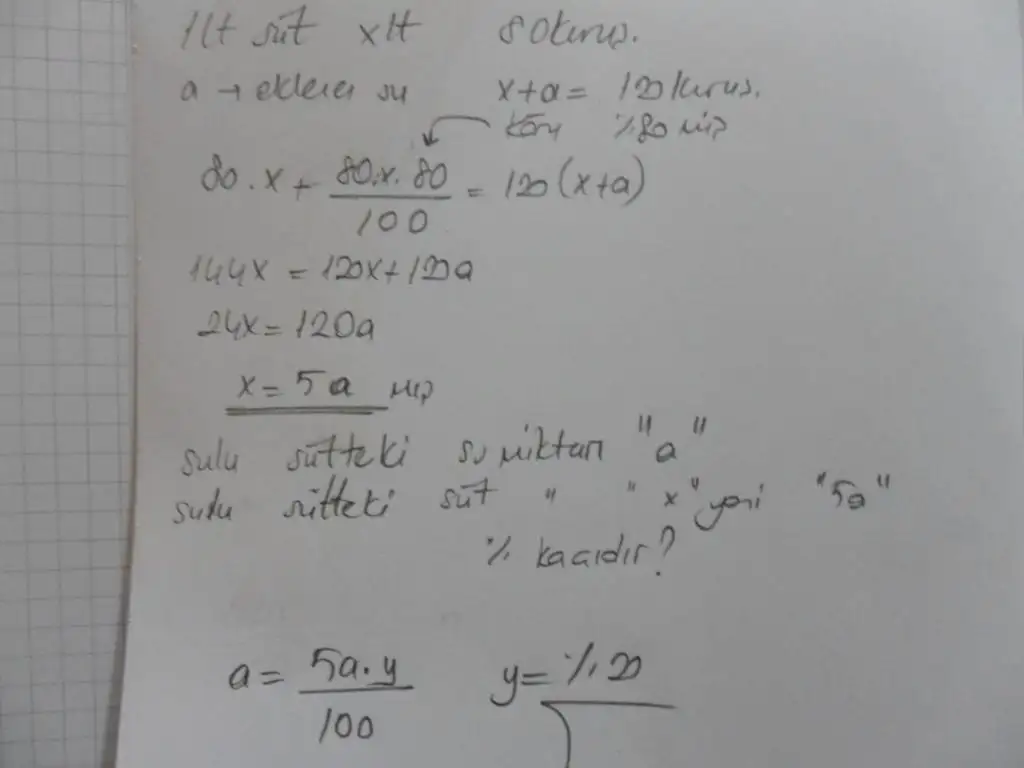 1lt süt xlt 80kuruş.
a → eklenen su x+a = 120kuruş.
karı %80 miş
80.x + 80.x.80 / 100 = 120(x+a)
144x = 120x+120a
24x = 120a
x = 5a mış
sulu sütteki su miktarı "a"
sulu sütteki süt " " x" yani "5a"
% kaçıdır?
a = 5a.y / 100 y = %20